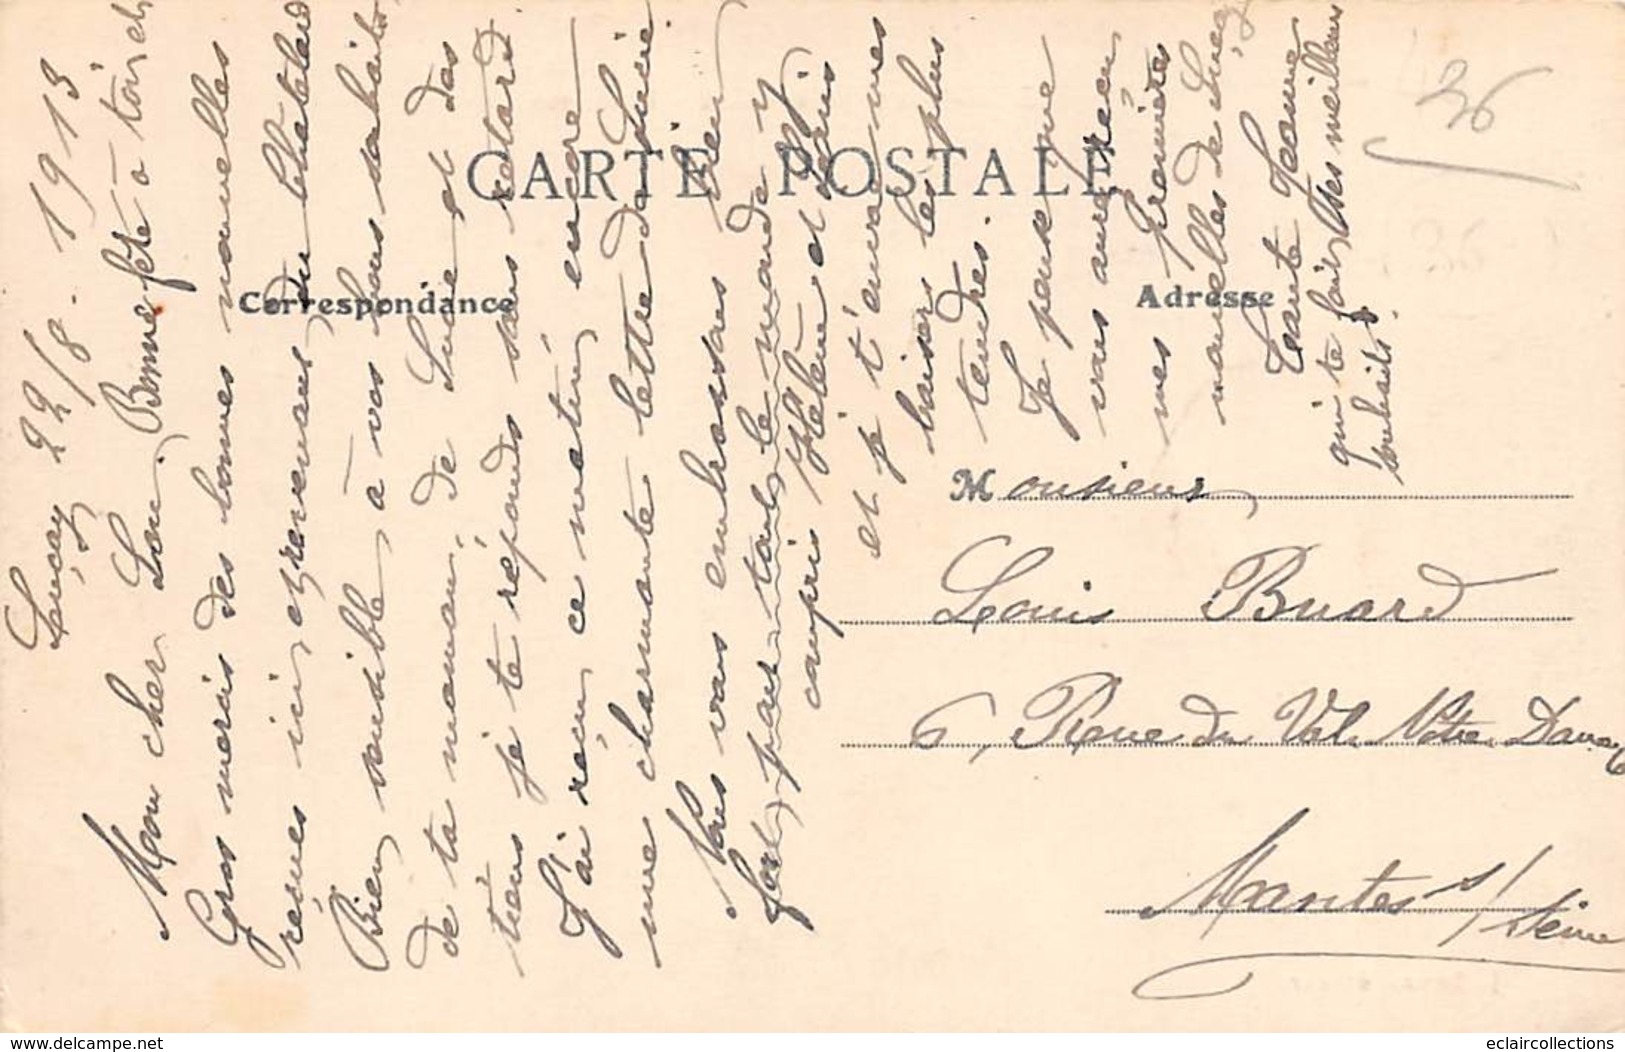 Luçay 22/8 - 1913
Mon cher Lou. Bonne fête à toi et
Gros mercis des bonnes nouvelles
reçues ici et revenant du Chatelard
Bien sensible à vos bons souhaits,
de ta maman, de Lucie et des
tiens je te réponds sans retard.
J'ai reçu ce matin encore
une charmante lettre de Lucie.
Nous vous embrassons bien
fort pour tout le monde y
compris Hélène et Denis
et je t'envoie mes
baisers les plus
tendres.
Je pense que
vous aurez reçu
mes premières
nouvelles de Luçay
Tante Jeanne
qui te fait ses meilleurs
souhaits.
36
CARTE POSTALE
Correspondance
Adresse
Monsieur
Louis Buard
6, Rue du Val Notre Dame
Mantes s/Seine
www.delcampe.net
eclaircollections